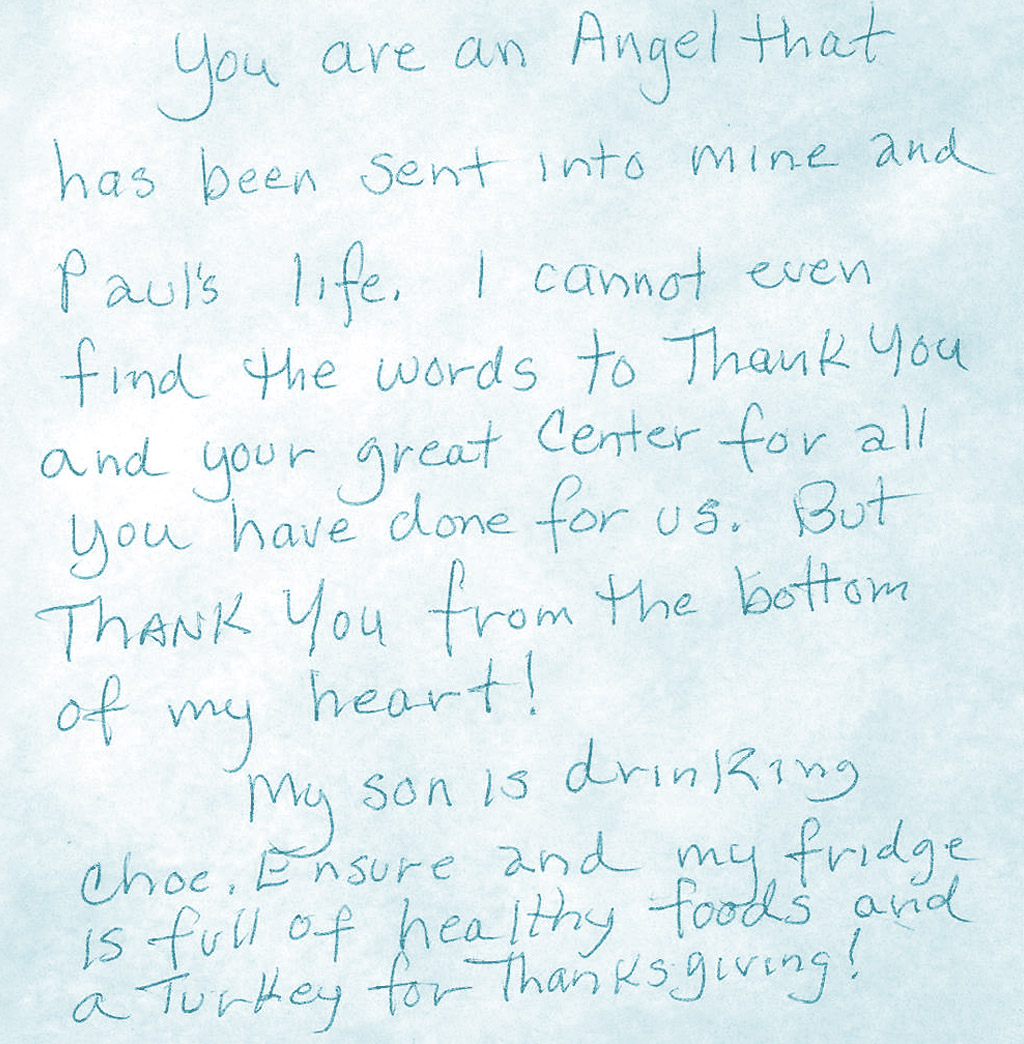 You are an Angel that
has been sent into mine and
Paul's life. I cannot even
find the words to Thank You
and your great Center for all
you have done for us. But
THANK You from the bottom
of my heart!
My son is drinking
Choc. Ensure and my fridge
is full of healthy foods and
a Turkey for Thanksgiving!